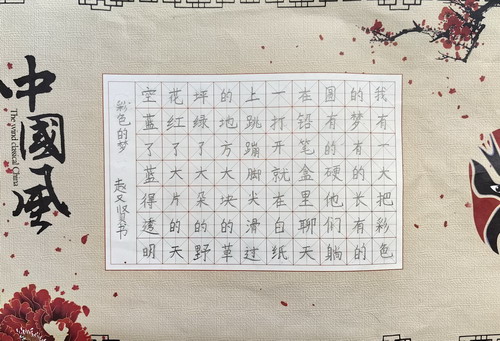 我有一大把彩色
的梦有的长有的
圆有的硬他们躺
在铅笔盒里聊天
一打开就在白纸
上跳蹦脚尖滑过
的地方大块的草
坪绿了大朵的野
花红了大片的天
空蓝了蓝得透明
彩色的梦 赵又贤书
中國風
The classical China